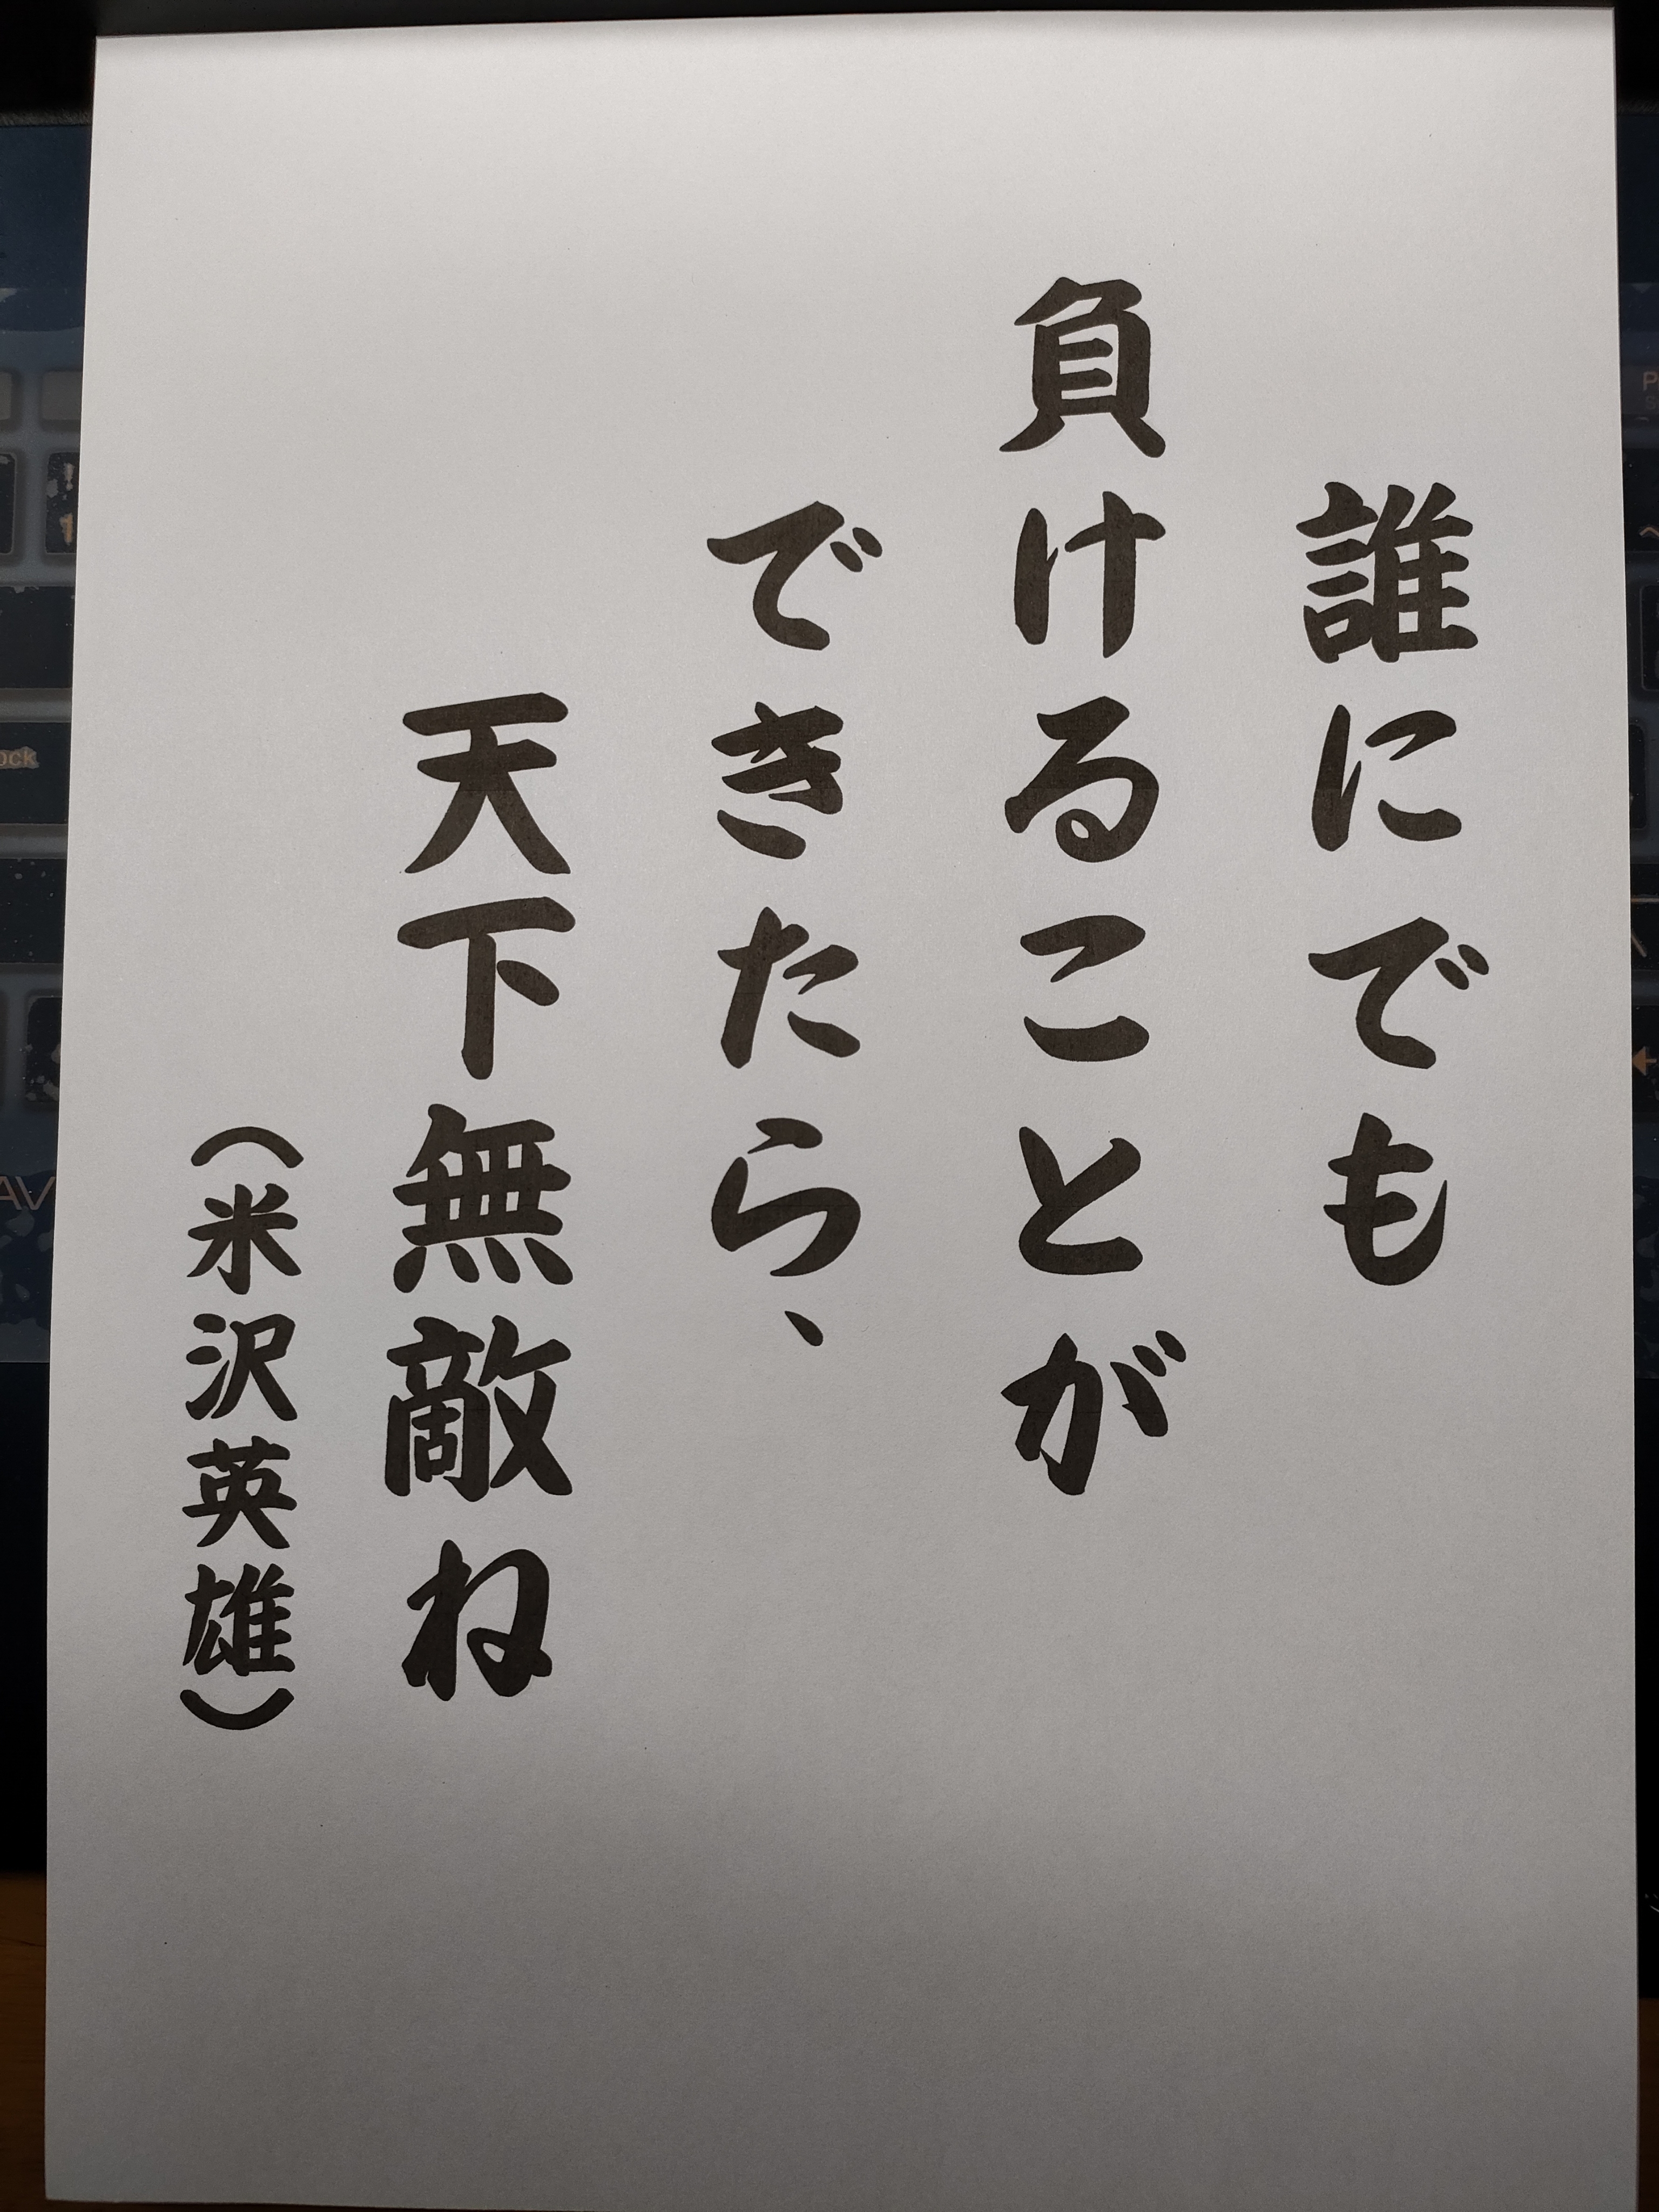 誰にでも
負けることが
できたら、
天下無敵ね
（米沢英雄）